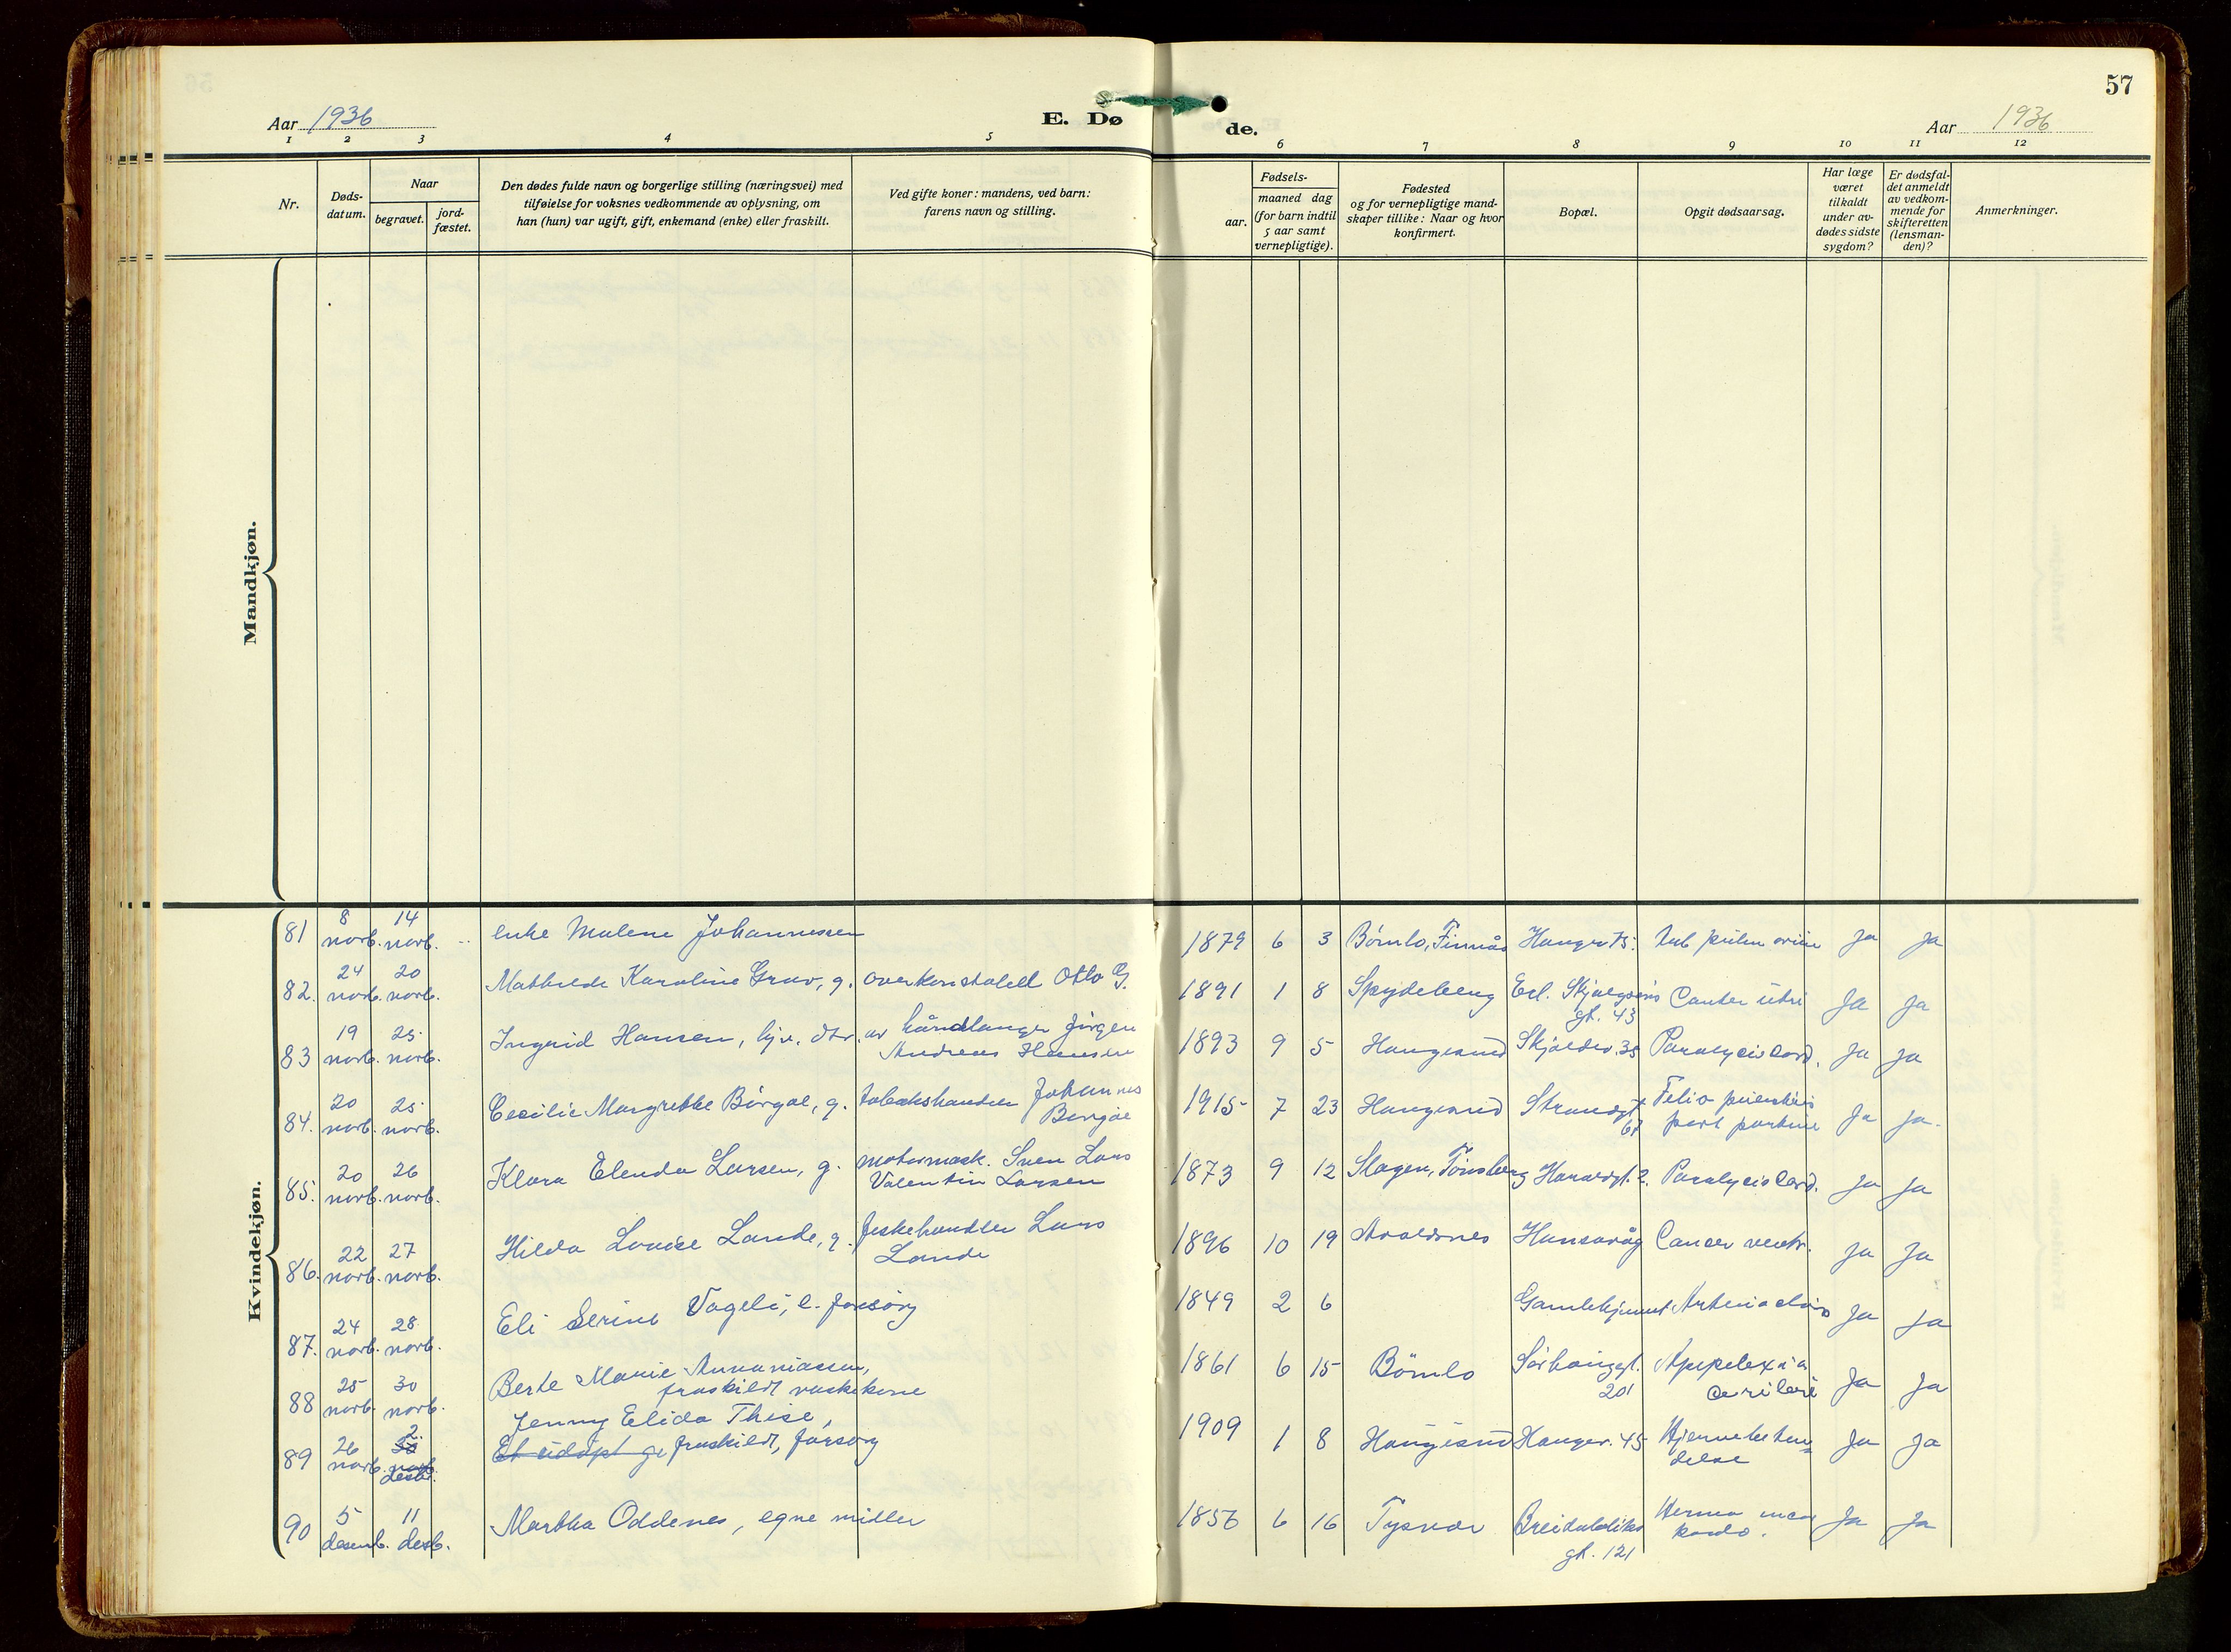 57
Aar 1936
E. Dø
de.
Aar 1936
1 2 3 4 5 6 7 8 9 10 11 12
Nr.
Døds-
datum.
Naar
begravet.
jord-
fæstet.
Den dødes fulde navn og borgerlige stilling (næringsvei) med
tilføielse for voksnes vedkommende av oplysning, om
han (hun) var ugift, gift, enkemand (enke) eller fraskilt.
Ved gifte koner: mandens, ved barn:
farens navn og stilling.
Fødsels-
aar.
maaned dag
(for barn indtil
5 aar samt
vernepligtige).
Fødested
og for vernepligtige mand-
skaper tillike: Naar og hvor
konfirmert.
Bopæl.
Opgit dødsaarsag.
Har læge
været
tilkaldt
under av-
dødes sidste
sygdom?
Er dødsfal-
det anmeldt
av vedkom-
mende for
skifteretten
(lensman-
den)?
Anmerkninger.
Mandkjøn.
Kvindekjøn.
81 8 novb. 14 novb. enke Malene Johannessen 1879 6 3 Bømlo, Finnås Ja Ja
82. 24 novb. 20 novb. Mathilde Karoline Grav, g. overkonstabel Otto G. 1891 1 8 Spydeberg Erl. Skjalgsøns
gt. 43 Cancer uteri Ja Ja
83 19 novb. 25 novb. Ingrid Hansen, hjv. dtr. av håndlanger Jørgen
Andreas Hansen 1893 9 5 Haugesund Skjoldev. 35 Paralysis cord. Ja Ja
84. 20 novb. 25 novb. Cecilie Margrethe Børgøe, g. tobakshandler Johannes
Børgøe 1915 7 23 Haugesund Strandgt
67 post partum Ja Ja.
85. 20 novb. 26 novb. Klara Elenda Larsen, g. motormask. Sven Lars
Valentin Larsen 1873 9 12 Slagen, Tønsberg Haraldgt. 2. Paralysis Cord. Ja Ja
86. 22 novb. 27 novb. Hilda Louise Lande, g. fiskehandler Lars
Lande 1896 10 19 Avaldsnes Hansavåg Cancer ventr. Ja Ja
87. 24 novb. 28 novb. Eli Serine Vageli, e. forsørg 1849 2 6 Gamlehjemmet Ja Ja
88 25 novb. 30 novb. Berte Marie Annaniassen,
fraskildt vaskekone 1861 6 15 Bömlo Sörhauggt.
201 Apoplexia
cerebri Ja Ja
89 26 novb. 2. desbr. Jenny Elida Thise,
fraskildt, forsørg 1909 1 8 Haugesund Haugev. 45 Hjernebetæn-
delse Ja Ja
90 5 desemb. 11 desb. Martha Oddenes, egne midler 1856 6 16 Tysvær Breidablik
gt. 121 Ja Ja